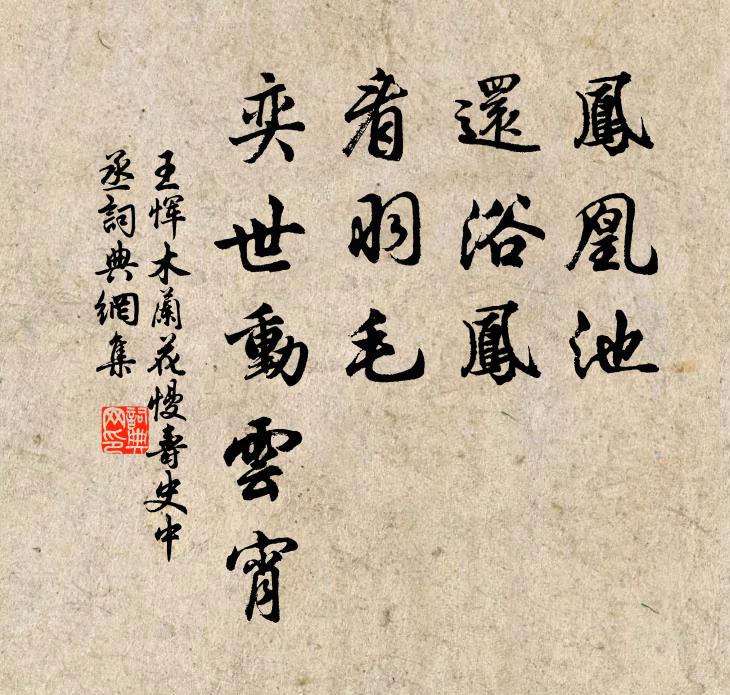 鳳凰池
還浴鳳
看羽毛
奕世動雲宵
王惲木蘭花慢壽史中
丞詞典網集
詞典
网印